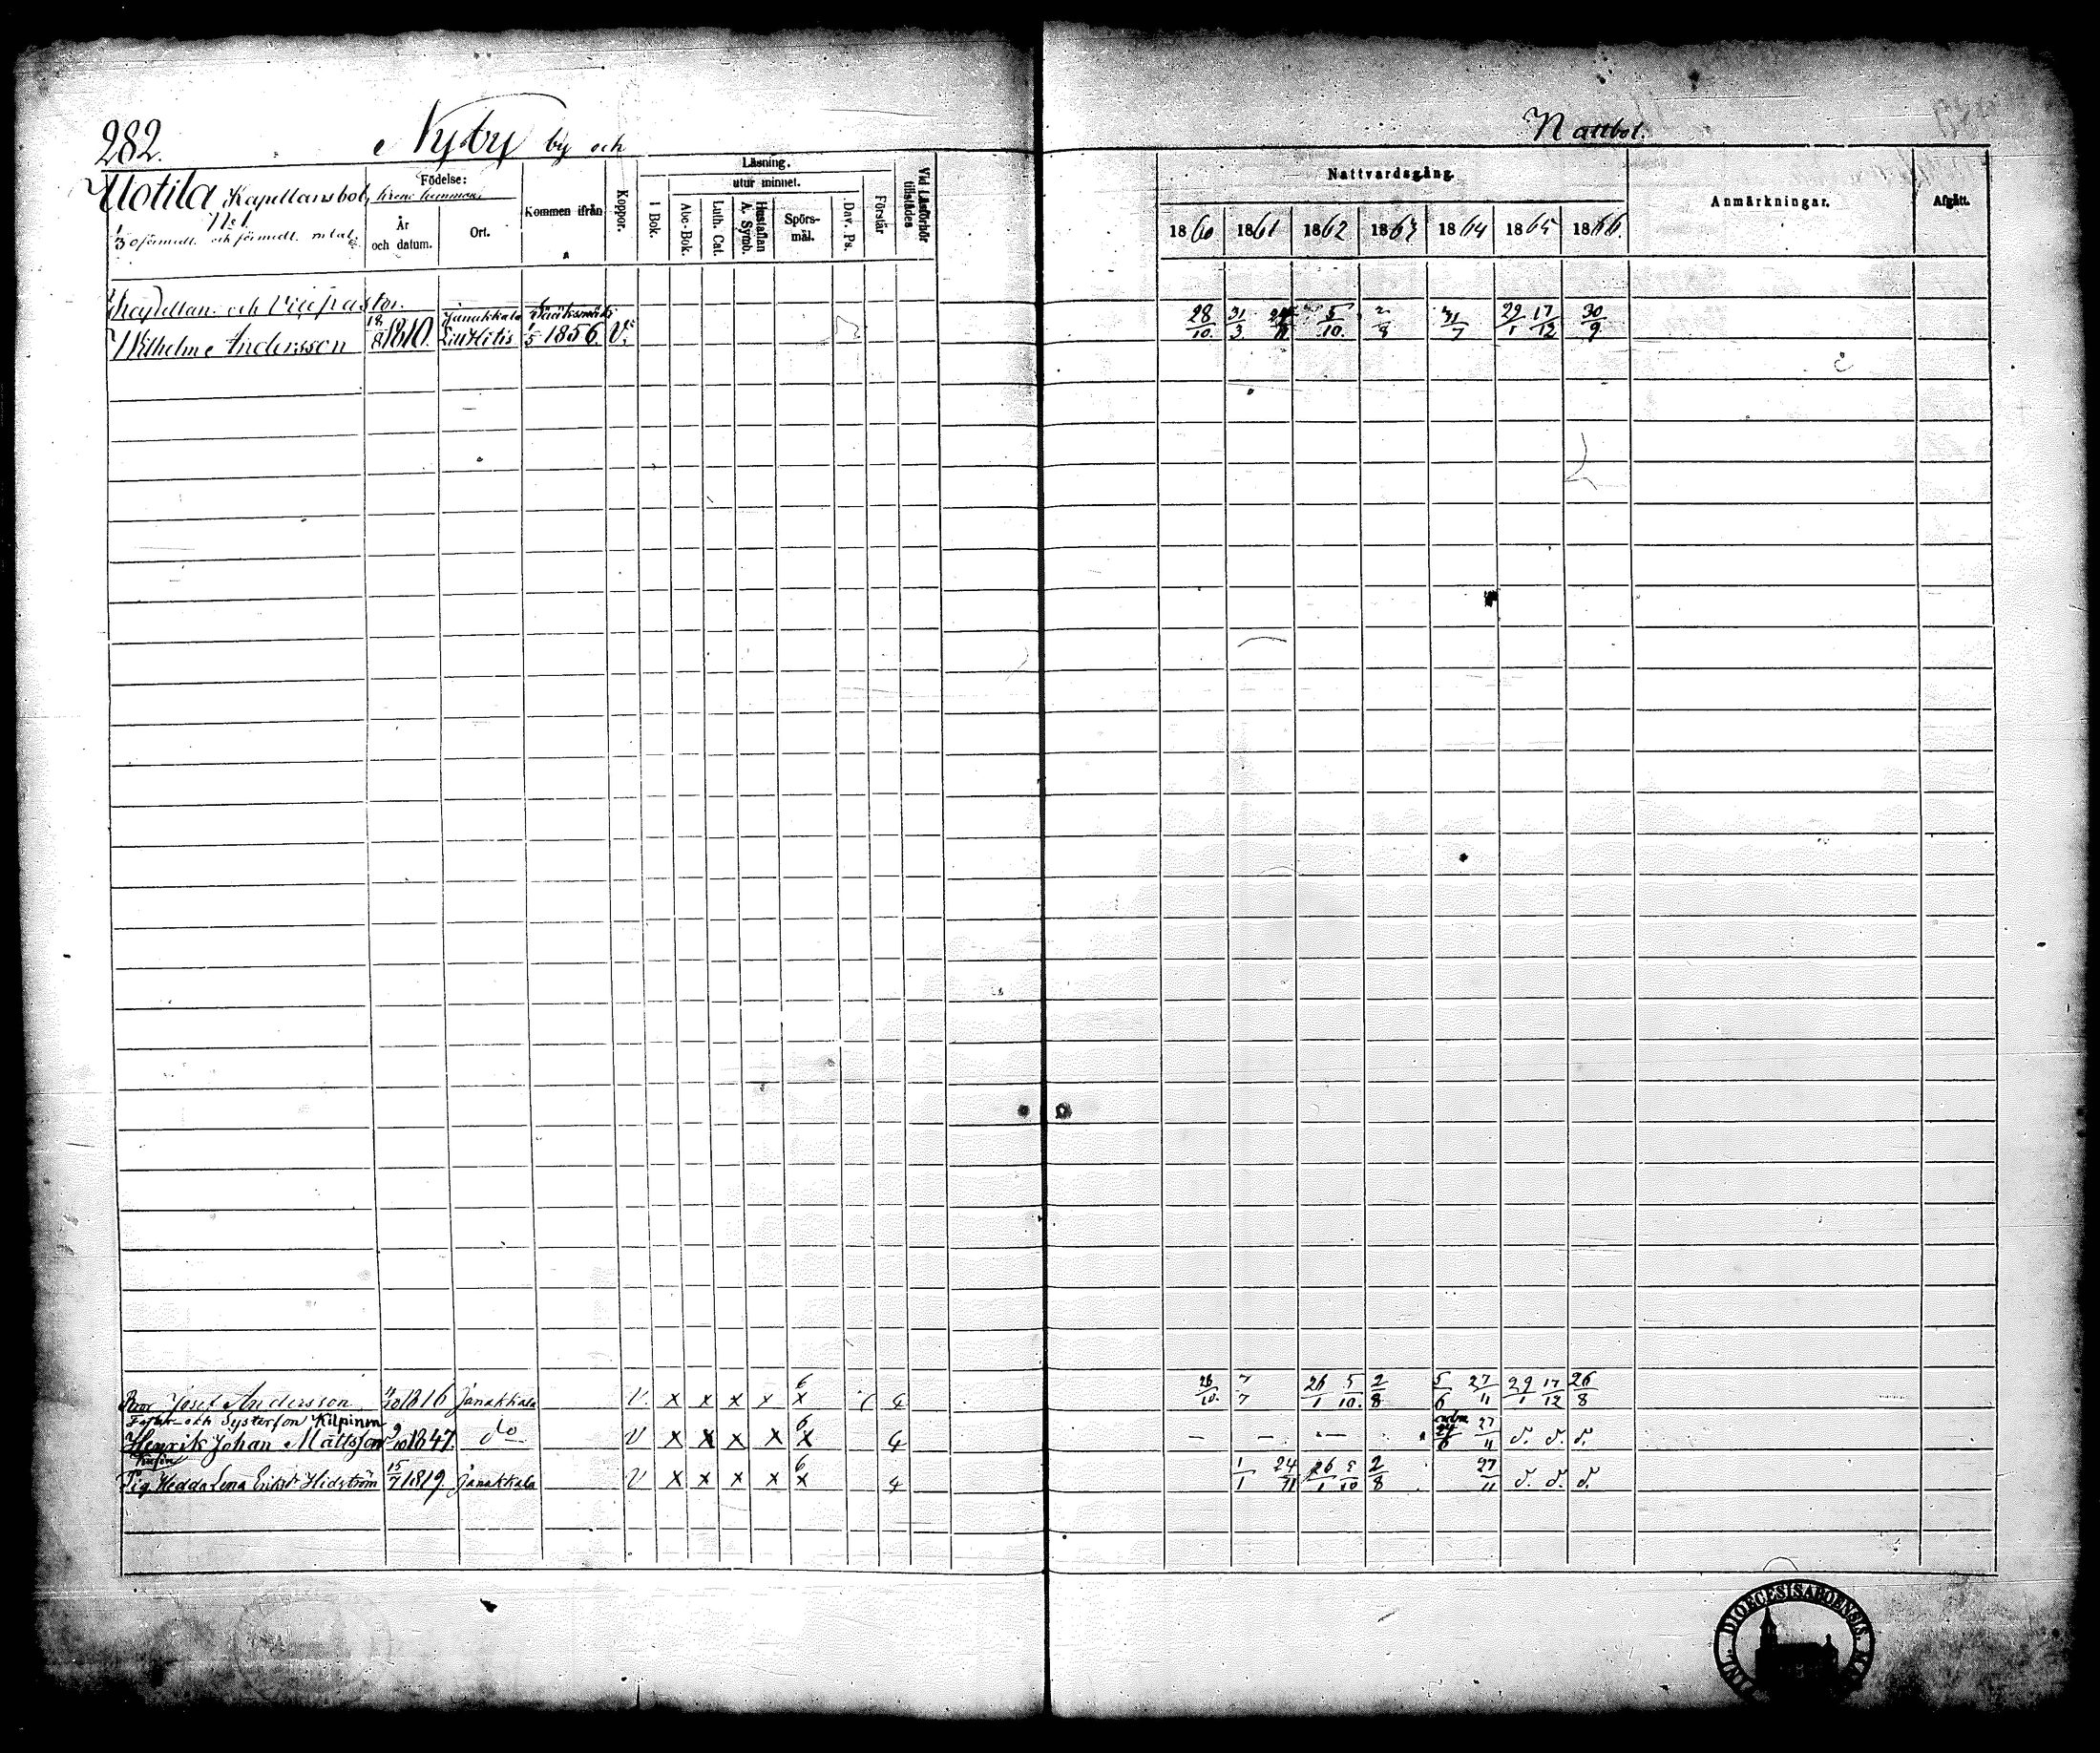 282.
Nyby by och
Nattbol.
Uotila Kapellansbol,
No 1.
Födelse:
År och datum.
Ort.
Kommen ifrån
Koppor.
Läsning.
utur minnet.
I Bok.
Abc-Bok.
Luth. Cat.
Hustaflan A. Symb.
Spörsmål.
Dav. Ps.
Förstår
Vid Läsförhör tillstädes
Nattvardsgång.
1860 1861 1862 1863 1864 1865 1866.
Anmärkningar.
Afgått.
Kapellan och Vicepastor.
Janakkala Sääksmäki
Wilhelm Andersson 18/8 1810. 1/5 1856 V. 28/10. 31/3 5/10. 2/8 31/7 29/1 17/12 30/9.
Bror Josef Andersson 1816 Janakkala V. x x x x 6 x 4 26/10. 7/7 26/1 5/10. 2/8 5/6 27/11 29/1 17/12 26/8
och Systerson Kilpinen
Henrik Johan Mattsson 1847. do V x x x x 6 x 4 — — — 24/6 27/11 d. d. d.
Pig. Hedda Lena Eriksdr Hidström 15/7 1819. Janakkala V x x x x 6 x 4 1/1 24/11 26/1 5/10 2/8 27/11 d. d. d.
DIOECESIS ABOENSIS.